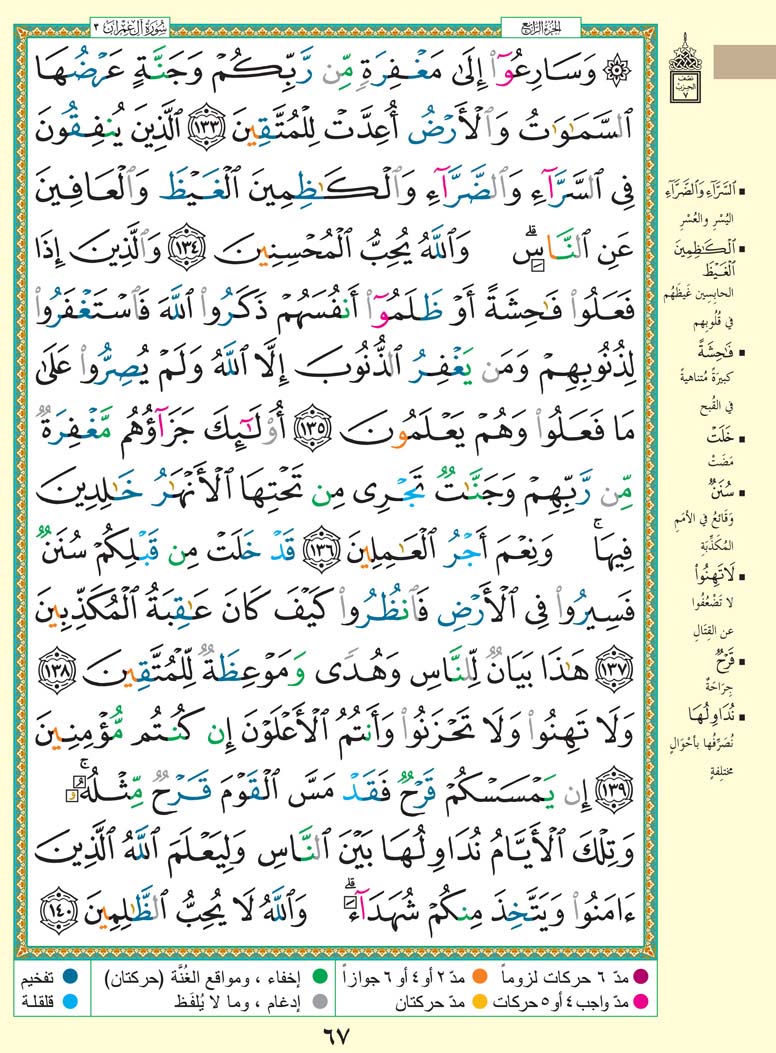 سُورَةُ آلِ عِمْرَان ٣
الجُزْءُ الرَّابِعُ
۞ وَسَارِعُوٓا۟ إِلَىٰ مَغْفِرَةٍ مِّن رَّبِّكُمْ وَجَنَّةٍ عَرْضُهَا
ٱلسَّمَـٰوَٰتُ وَٱلْأَرْضُ أُعِدَّتْ لِلْمُتَّقِينَ ١٣٣ ٱلَّذِينَ يُنفِقُونَ
فِى ٱلسَّرَّآءِ وَٱلضَّرَّآءِ وَٱلْكَـٰظِمِينَ ٱلْغَيْظَ وَٱلْعَافِينَ
عَنِ ٱلنَّاسِ ۗ وَٱللَّهُ يُحِبُّ ٱلْمُحْسِنِينَ ١٣٤ وَٱلَّذِينَ إِذَا
فَعَلُوا۟ فَـٰحِشَةً أَوْ ظَلَمُوٓا۟ أَنفُسَهُمْ ذَكَرُوا۟ ٱللَّهَ فَٱسْتَغْفَرُوا۟
لِذُنُوبِهِمْ وَمَن يَغْفِرُ ٱلذُّنُوبَ إِلَّا ٱللَّهُ وَلَمْ يُصِرُّوا۟ عَلَىٰ
مَا فَعَلُوا۟ وَهُمْ يَعْلَمُونَ ١٣٥ أُو۟لَـٰٓئِكَ جَزَآؤُهُم مَّغْفِرَةٌ
مِّن رَّبِّهِمْ وَجَنَّـٰتٌ تَجْرِى مِن تَحْتِهَا ٱلْأَنْهَـٰرُ خَـٰلِدِينَ
فِيهَا ۚ وَنِعْمَ أَجْرُ ٱلْعَـٰمِلِينَ ١٣٦ قَدْ خَلَتْ مِن قَبْلِكُمْ سُنَنٌ
فَسِيرُوا۟ فِى ٱلْأَرْضِ فَٱنظُرُوا۟ كَيْفَ كَانَ عَـٰقِبَةُ ٱلْمُكَذِّبِينَ
١٣٧ هَـٰذَا بَيَانٌ لِّلنَّاسِ وَهُدًى وَمَوْعِظَةٌ لِّلْمُتَّقِينَ ١٣٨
وَلَا تَهِنُوا۟ وَلَا تَحْزَنُوا۟ وَأَنتُمُ ٱلْأَعْلَوْنَ إِن كُنتُم مُّؤْمِنِينَ
١٣٩ إِن يَمْسَسْكُمْ قَرْحٌ فَقَدْ مَسَّ ٱلْقَوْمَ قَرْحٌ مِّثْلُهُۥ ۚ
وَتِلْكَ ٱلْأَيَّامُ نُدَاوِلُهَا بَيْنَ ٱلنَّاسِ وَلِيَعْلَمَ ٱللَّهُ ٱلَّذِينَ
ءَامَنُوا۟ وَيَتَّخِذَ مِنكُمْ شُهَدَآءَ ۗ وَٱللَّهُ لَا يُحِبُّ ٱلظَّـٰلِمِينَ ١٤٠
نصف
الحزب
٧
ٱلسَّرَّآءِ وَٱلضَّرَّآءِ
اليُسْرِ والعُسْرِ
ٱلْكَـٰظِمِينَ
ٱلْغَيْظَ
الحابِسِين غَيظَهُم
في قُلُوبِهم
فَـٰحِشَةً
كبيرَةً مُتناهيةً
في القُبح
خَلَتْ
مَضَتْ
سُنَنٌ
وَقَائعُ في الأمَمِ
المُكَذِّبَةِ
لَا تَهِنُوا۟
لا تَضْعُفُوا
عن القِتَالِ
قَرْحٌ
جِرَاحَةٌ
نُدَاوِلُهَا
نُصَرِّفُها بأحْوَالٍ
مختلِفةٍ
مدّ ٦ حركات لزوماً
مدّ ٢ أو ٤ أو ٦ جوازاً
إخفاء ، ومواقع الغُنَّة (حركتان)
تفخيم
مدّ واجب ٤ أو ٥ حركات
مدّ حركتان
إدغام ، وما لا يُلفَظ
قلقلة
٦٧